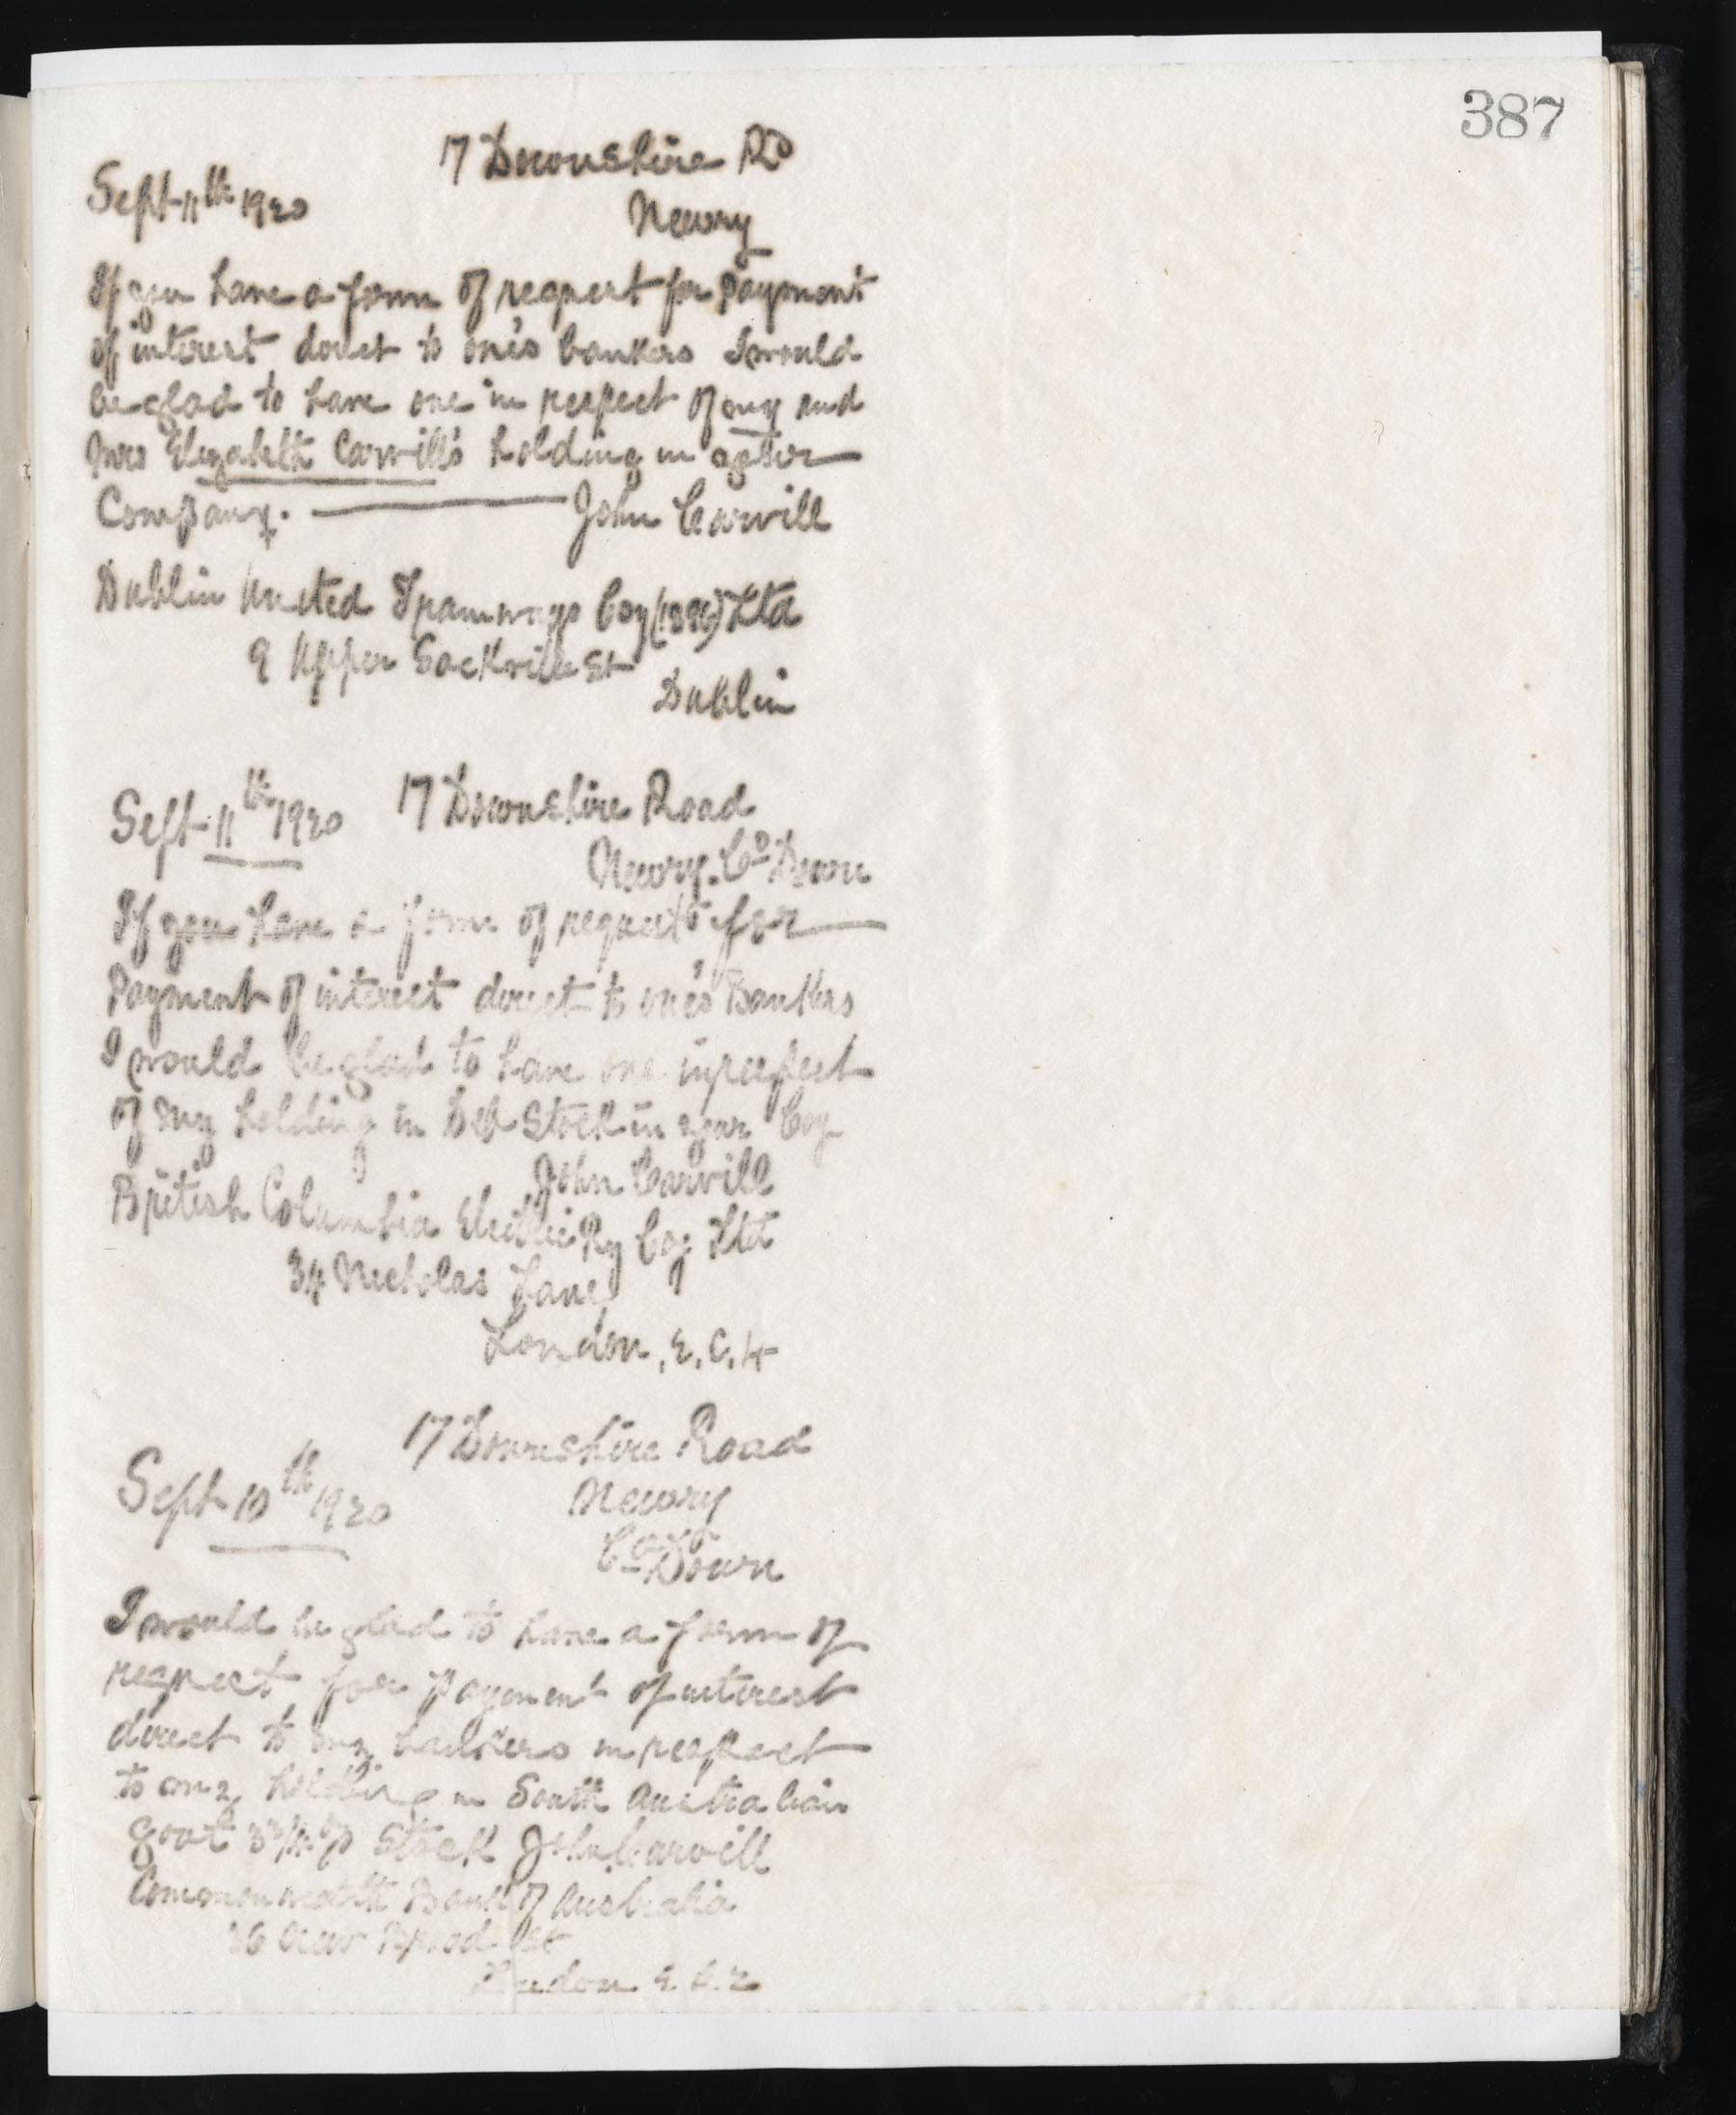 387
17 Downshire Rd
Sept 11th 1920
Newry
If you have a form of request for payment
of interest direct to one's bankers I would
be glad to have one in respect of my and
Mrs Elizabeth Carvill's holding in
Company. John Carvill
Dublin United Tramways Coy (1896) Ltd
9 Upper Sackville St
Dublin
Sept 11th 1920 17 Downshire Road
Newry. Co Down
If you have a form of request for
Payment of interest direct to one's Bankers
I would be glad to have one in respect
of my holding in Deb Stock in your Coy
John Carvill
British Columbia Electric Ry Coy Ltd
34 Nicholas Lane,
London, E.C.4
17 Downshire Road
Sept 10th 1920
Newry
Co Down
I would be glad to have a form of
request for payment of interest
direct to my bankers in respect
to my holding in South Australian
Govt 3 3/4 % Stock John Carvill
Commonwealth Bank of Australia
36 New Broad St
London E.C.2